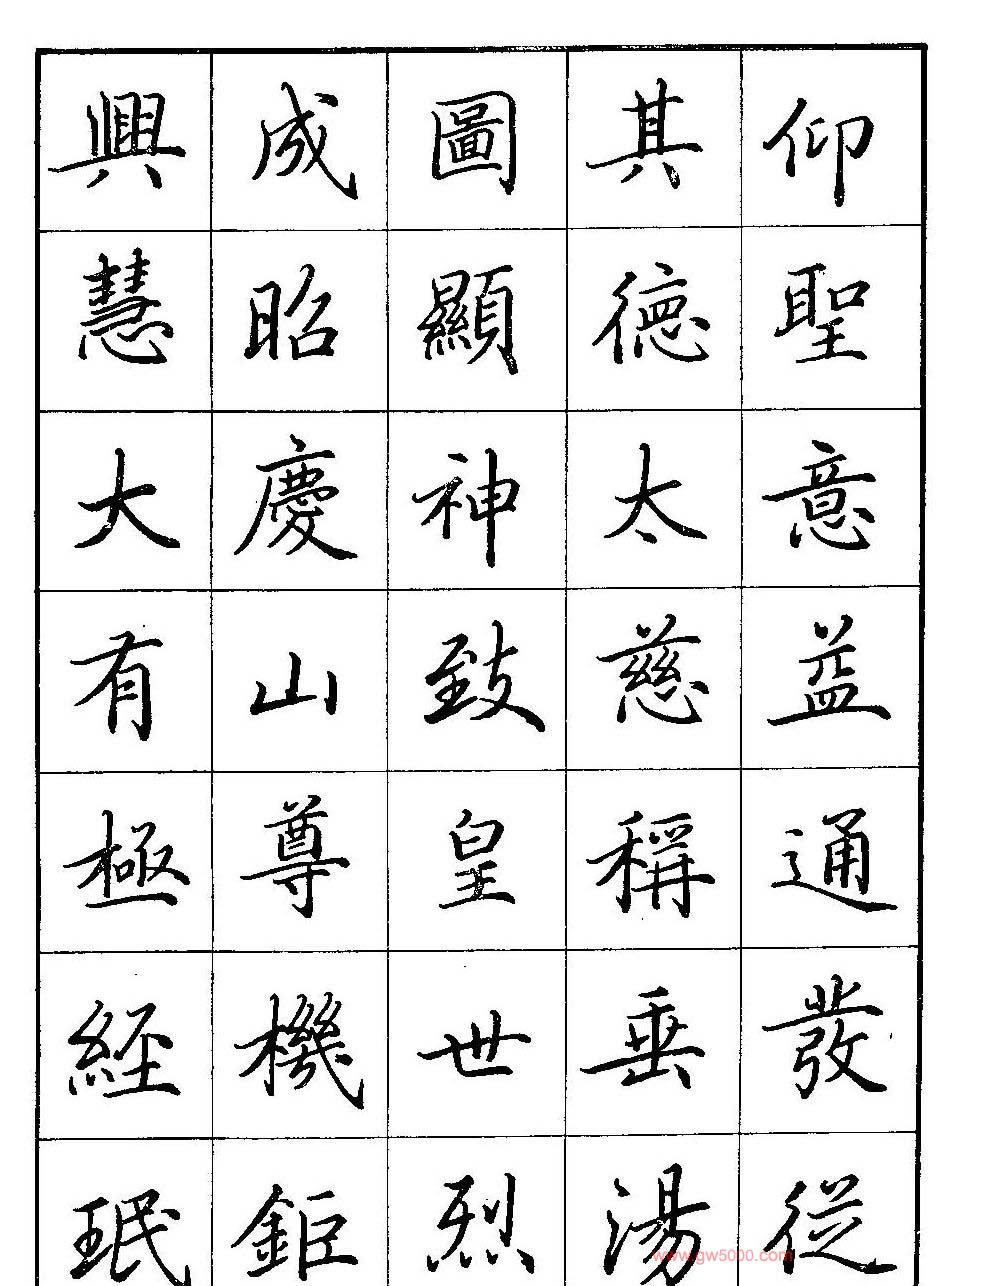 仰聖意益通發從
其德太慈稱垂湯
圖顯神致皇世烈
成昭慶山尊機鉅
興慧大有極經珉
www.gw5000.com